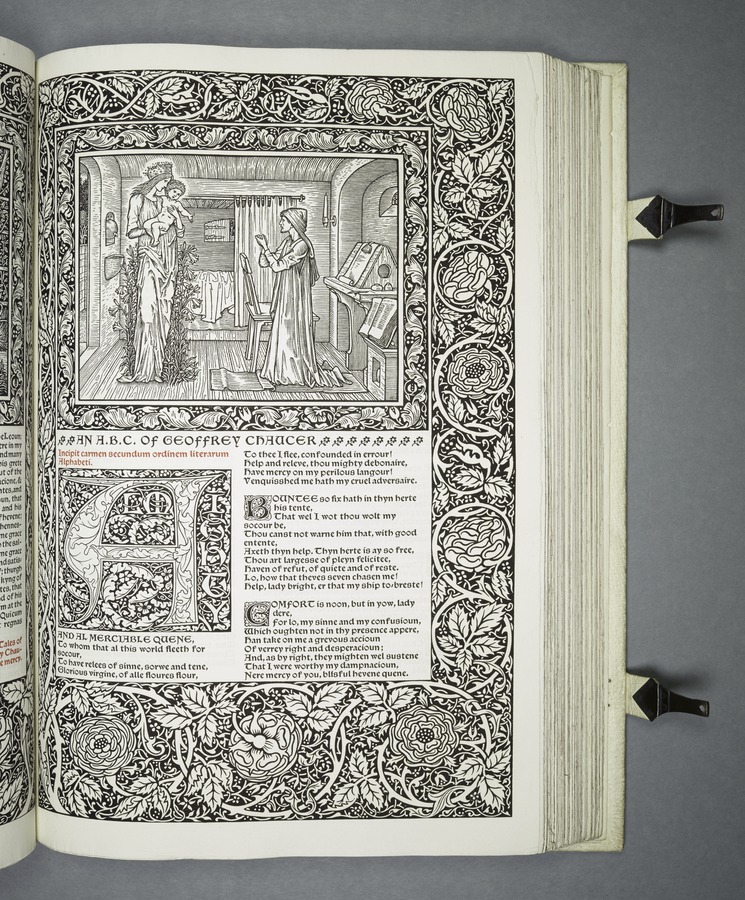 eLeoun;
tre in my
nd many
his grete
ut of the
cioné, &
ntes, and
un, that
and his
f hevene:
hennes-
me grace
the sal-
me grace
nd satis-
; thurgh
kyng of
tes, that
d of his
m at the
Quicum
regnas
Tales of
y Chau-
e mercy.
AN A.B.C. OF GEOFFREY CHAUCER
Incipit carmen secundum ordinem literarum
Alphabeti.
ALMIGHTY
AND AL MERCIABLE QUENE,
To whom that al this world fleeth for
socour,
To have relees of sinne, sorwe and tene,
Glorious virgine, of alle floures flour,
To thee I flee, confounded in errour!
Help and releve, thou mighty debonaire,
Have mercy on my perilous langour!
Venquisshed me hath my cruel adversaire.
BOUNTEE so fix hath in thyn herte
his tente,
That wel I wot thou wolt my
socour be,
Thou canst not warne him that, with good
entente,
Axeth thyn help. Thyn herte is ay so free,
Thou art largesse of pleyn felicitee,
Haven of refut, of quiete and of reste.
Lo, how that theves seven chasen me!
Help, lady bright, er that my ship to-breste!
COMFORT is noon, but in yow, lady
dere,
For lo, my sinne and my confusioun,
Which oughten not in thy presence appere,
Han take on me a grevous accioun
Of verrey right and desperacioun;
And, as by right, they mighten wel sustene
That I were worthy my dampnacioun,
Nere mercy of you, blisful hevene quene.